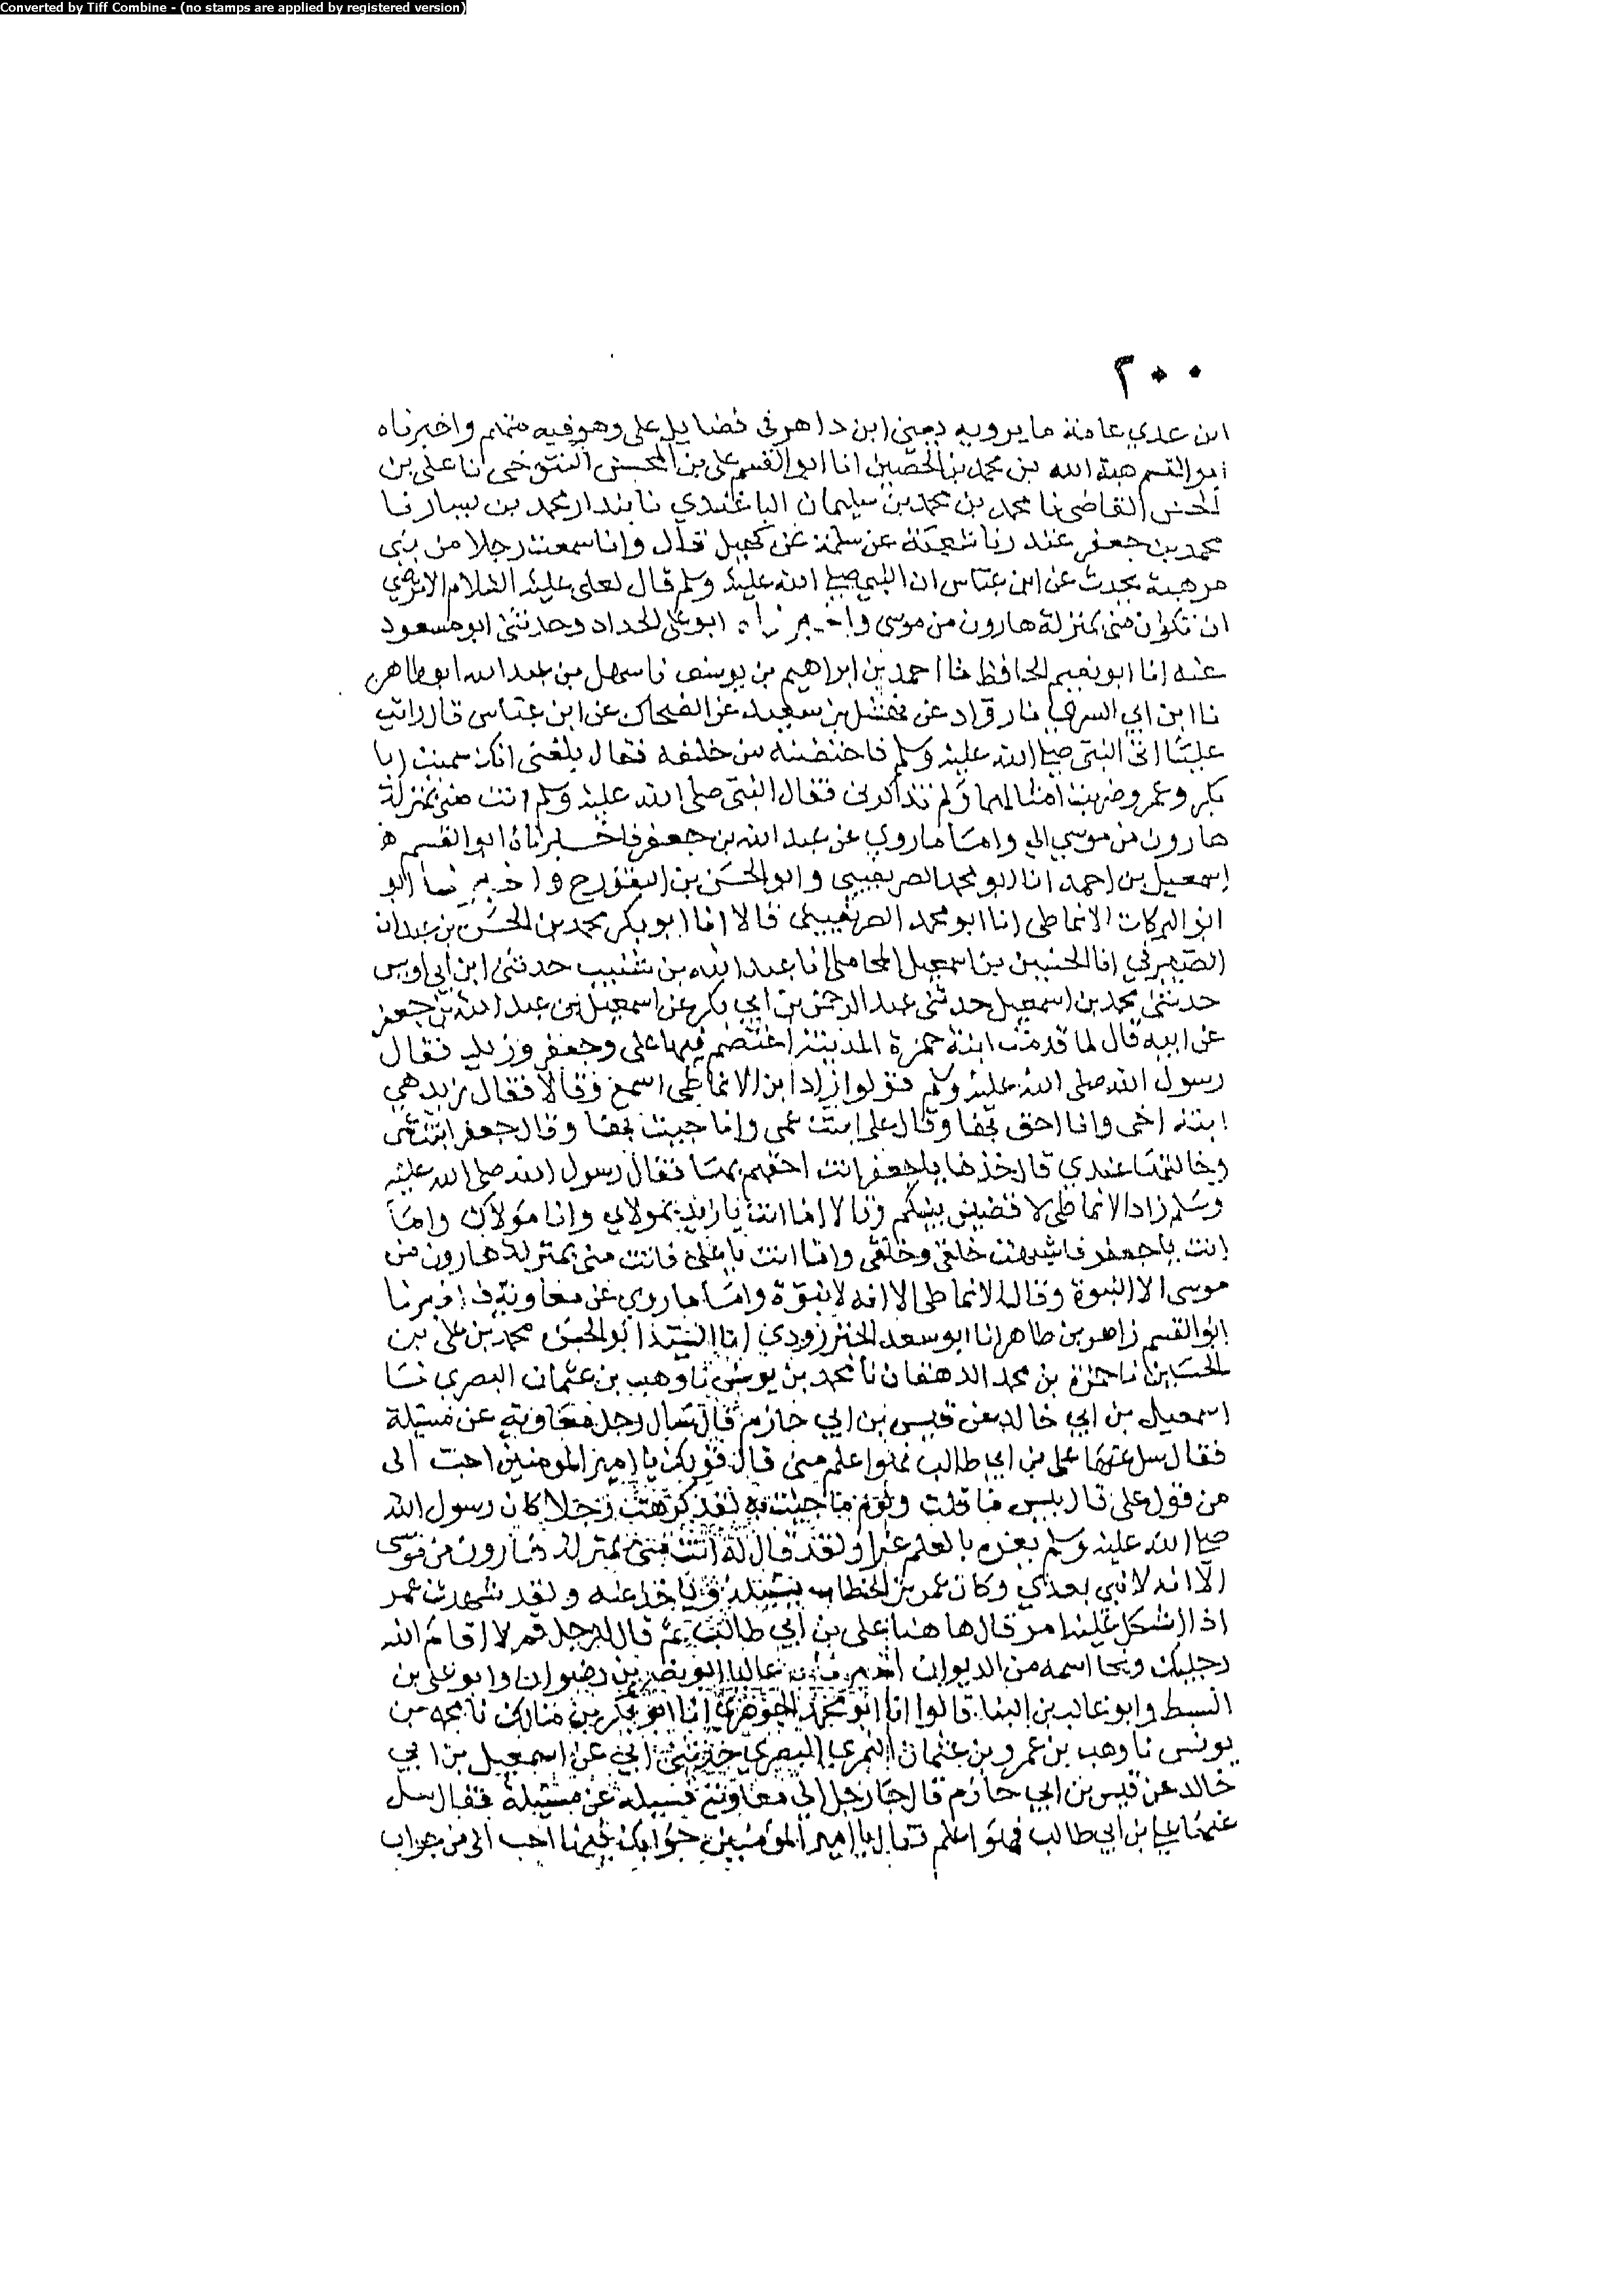 Converted by Tiff Combine - (no stamps are applied by registered version)
٢٠٠
ابن عدي عامة ما يرويه يعني ابن داهر في فضايل علي وهو فيه متهم واخبرناه
ابو القسم هبة الله بن محمد بن الحصين انا ابو القسم علي بن المحسن التنوخي انا علي بن
الحسن القاضي نا محمد بن محمد بن سليمان الباغندي نا بندار محمد بن بسار نا
محمد بن جعفر غندر نا شعبة عن سلمة عن كهيل قال وانا سمعت رجلا من بني
مرهبة يحدث عن ابن عباس ان النبي صلى الله عليه وسلم قال لعلي عليه السلام الا ترضي
ان تكون مني بمنزلة هارون من موسى واخبرناه ابو علي الحداد وحدثني ابو مسعود
عنه انا ابو نعيم الحافظ نا احمد بن ابراهيم بن يوسف نا سهل بن عبد الله ابو طاهر
نا ابن ابي السري نا رواد عن نهشل بن سعيد عن الضحاك عن ابن عباس قال رايت
عليا اتى النبي صلى الله عليه وسلم فاحتضنه من خلفه فقال بلغني انك سميت ابا
بكر وعمر وضربت امثالهما ولم تذكرني فقال النبي صلى الله عليه وسلم انت مني بمنزلة
هارون من موسي واما ما روي عن عبد الله بن جعفر فاخبرناه ابو القسم
اسمعيل بن احمد انا ابو محمد الصريفيني وابو الحسن بن النقور ح واخبرنا ابو
ابو البركات الانماطي انا ابو محمد الصريفيني قالا انا ابو بكر محمد بن الحسن بن عبدان
الصيرفي انا الحسين بن اسمعيل المحاملي نا عبد الله بن شبيب حدثني ابن ابي اويس
حدثني محمد بن اسمعيل حدثني عبد الرحمن بن ابي بكر عن اسمعيل بن عبد الله بن جعفر
عن ابيه قال لما قدمت ابنة حمزة المدينة اختصم فيها علي وجعفر وزيد فقال
رسول الله صلى الله عليه وسلم قولوا زاد ابن الانماطي اسمع وقالا فقال زيد هي
ابنة اخي وانا احق بها وقال علي ابنت عمي وانا جيت بها وقال جعفر ابنة عمي
وخالتها عندي قال خذها يا جعفر انت احقهم بها فقال رسول الله صلى الله عليه
وسلم زاد الانماطي لاقضين بينكم وقالا اما انت يا زيد بمولاي وانا مولاك واما
انت يا جعفر فاشبهت خلقي وخلقي واما انت يا علي فانت مني بمنزلة هارون من
موسى الا النبوة وقال الانماطي الا انه لا نبوة واما ما روي عن معاوية فاخبرنا
ابو القسم زاهر بن طاهر انا ابو سعد الخنزرودي انا السيد ابو الحسن محمد بن علي بن
الحسين نا حمزة بن محمد الدهقان نا محمد بن يونس نا وهب بن عثمان البصري نا
اسمعيل بن ابي خالد عن قيس بن ابي حازم قال سال رجل معاوية عن مسيلة
فقال سل عنها علي بن ابي طالب فهو اعلم مني قال قولك يا امير المومنين احب الى
من قول علي قال بيس ما قلت ولوم ما جيت به لقد كرهت رجلا كان رسول الله
صلى الله عليه وسلم يغره بالعلم غرا ولقد قال له انت مني بمنزلة هارون من موسى
الا انه لا نبي بعدي وكان عمر بن الخطاب يسيله وياخذ عنه ولقد شهدت عمر
اذا اشكل عليه امر قال ها هنا علي بن ابي طالب ثم قال للرجل قم لا اقام الله
رجليك ومحا اسمه من الديوان اخبرناه عاليا ابو نصر بن رضوان وابو علي بن
السبط وابو غالب بن البنا قالوا انا ابو محمد الجوهري انا ابو بكر بن مالك نا محمد بن
يونس نا وهب بن عمرو بن عثمان النمري البصري حدثني ابي عن اسمعيل بن ابي
خالد عن قيس بن ابي حازم قال جا رجل الى معاوية فسيله عن مسيلة فقال سل
عنها علي بن ابي طالب فهو اعلم فقال يا امير المومنين جوابك فيها احب الى من جواب